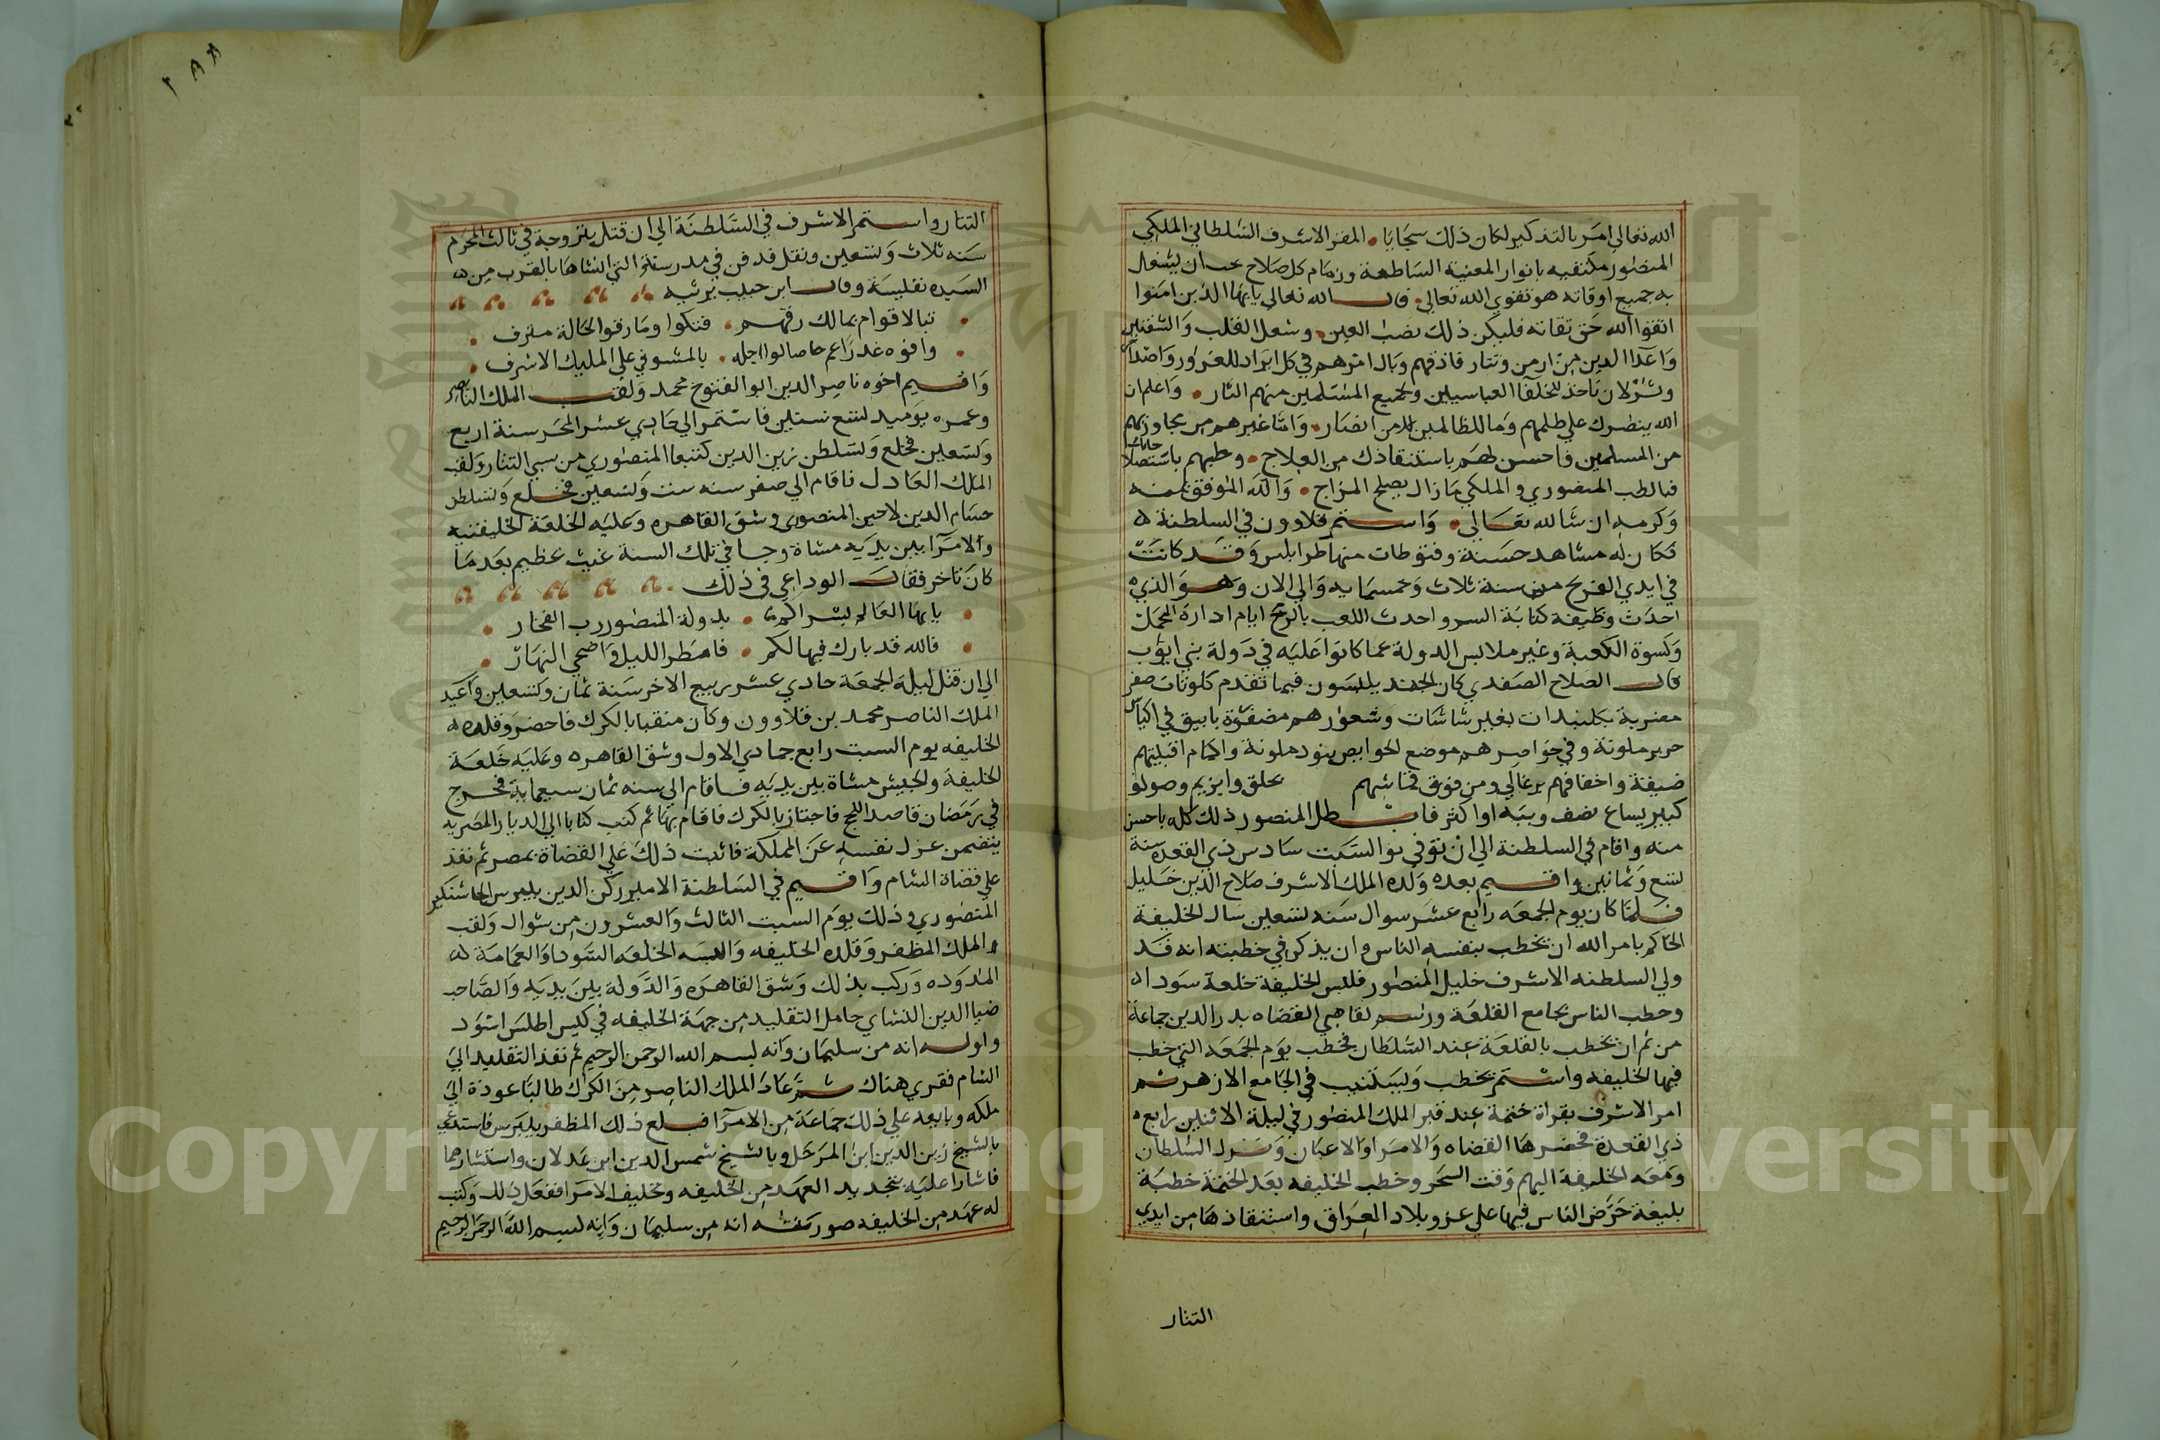 الله تعالى امر بالتذكير لكان ذلك سجايا المقر الاشرف السلطاني الملكي
المنصور مكتفيه بانوار المعنية الساطعة وزمام كل صلاح يجب ان يشغل
به جميع اوقاته هو تقوى الله تعالى قال الله تعالى يايها الذين امنوا
اتقوا الله حق تقاته فليكن ذلك نصب العين وشغل القلب والشفتين
واعدا الدين من ارمن وتتار فاذقهم وبال امرهم في كل ايراد للغزو واصدار
وثر لان تاخذ للخلفا العباسيين ولجميع المسلمين منهم الثار واعلم ان
الله ينصرك على ظلمهم وما للظالمين من انصار واما غيرهم من مجاوريهم
من المسلمين فاحسن لهم باستنقاذك من العلاج وطبهم باستصلاحك
فبالطب المنصوري والملكي ما زال يصلح المزاج والله الموفق بمنه
وكرمه ان شا الله تعالى واستمر قلاوون في السلطنة
فكان له مشاهد حسنة وفتوحات منها طرابلس وقد كانت
في ايدي الفرنج من سنة ثلاث وخمسمايه والى الان وهو الذي
احدث وظيفة كتابة السر واحدث اللعب بالرمح ايام ادارة المحمل
وكسوة الكعبة وغير ملابس الدولة عما كانوا عليه في دولة بني ايوب
قال الصلاح الصفدي كان الجند يلبسون فيما تقدم كلوتات صفر
مضربة بكلبندات بغير شاشات وشعورهم مضفرة بابيق في اكياس
حرير ملونة وفي خواصرهم موضع الحوايص بنود ملونة واكمام اقبيتهم
ضيقة واخفافهم برغالي ومن فوق قماشهم بحلق وابزيم وصولق
كبير يساع نصف ويبه او اكثر فابطل المنصور ذلك كله باحسن
منه واقام في السلطنة الى ان توفي يوم السبت سادس ذي القعدة سنة
تسع وثمانين واقيم بعده ولده الملك الاشرف صلاح الدين خليل
فلما كان يوم الجمعه رابع عشر شوال سنه تسعين سال الخليفة
الحاكم بامر الله ان يخطب بنفسه الناس وان يذكر في خطبته انه قد
ولي السلطنه الاشرف خليل المنصور فلبس الخليفة خلعة سودا
وخطب الناس بجامع القلعة ورسم لقاضي القضاه بدر الدين جماعة
من ثم ان يخطب بالقلعة عند السلطان فخطب يوم الجمعة التي خطب
فيها الخليفه واستمر يخطب ويستنيب في الجامع الازهر ثم
امر الاشرف بقراة ختمة عند قبر الملك المنصور في ليلة الاثنين رابع
ذي القعدة فحضرها القضاه والامرا والاعيان ونزل السلطان
ومعه الخليفة اليهم وقت السحر وخطب الخليفه بعد الختمة خطبة
بليغة حرض الناس فيها على غزو بلاد العراق واستنقاذها من ايدي
التتار
٢٨٨
التتار واستمر الاشرف في السلطنة الى ان قتل بتروجة في ثالث المحرم
سنه ثلاث وتسعين ونقل فدفن في مدرسته التي انشاها بالقرب من
السيده نفيسة وقال ابن حبيب يرثيه
تبا لاقوام بمالك رقهم فتكوا وما رقوا لحالة مترف
وافوه غدرا ثم صالوا اجله بالمشرفي على المليك الاشرف
واقيم اخوه ناصر الدين ابو الفتوح محمد ولقب الملك الناصر
وعمره يوميد تسع سنين فاستمر الى حادي عشر المحرم سنة اربع
وتسعين فخلع وتسلطن زين الدين كتبغا المنصوري من سبي التتار ولقب
الملك العادل فاقام الى صفر سنه ست وتسعين فخلع وتسلطن
حسام الدين لاجين المنصوري وشق القاهره وعليه الخلعة الخليفتيه
والامرا بين يديه مشاة وجا في تلك السنة غيث عظيم بعد ما
كان تاخر فقال الوداعي في ذلك
يايها العالم بشراكم بدولة المنصور رب الفخار
فالله قد بارك فيها لكم فامطر الليل واضحى النهار
الى ان قتل ليلة الجمعة حادي عشر ربيع الاخر سنة ثمان وتسعين واعيد
الملك الناصر محمد بن قلاوون وكان منفيا بالكرك فاحضر وقلده
الخليفه يوم السبت رابع جمادي الاول وشق القاهره وعليه خلعة
الخليفة والجيش مشاة بين يديه فاقام الى سنه ثمان سبعماية فخرج
في رمضان قاصدا الحج فاجتاز بالكرك فاقام بها ثم كتب كتابا الى الديار المصريه
يتضمن عزل نفسه عن المملكة فاثبت ذلك على القضاة بمصر ثم نفذ
على قضاة الشام واقيم في السلطنة الامير ركن الدين بيبرس الجاشنكير
المنصوري وذلك يوم السبت الثالث والعشرون من شوال ولقب
الملك المظفر وقلده الخليفه والبسه الخلعه السودا والعمامة
المدوده وركب بذلك وشق القاهرة والدولة بين يديه والصاحب
ضيا الدين النشاي حامل التقليد من جهة الخليفه في كيس اطلس اسود
واوله انه من سليمان وانه بسم الله الرحمن الرحيم ثم نفذ التقليد الى
الشام فقري هناك ثم عاد الملك الناصر من الكرك طالبا عودة الى
ملكه وبايعه على ذلك جماعة من الامرا فبلغ ذلك المظفر بيبرس فاستدعى
بالشيخ زين الدين ابن المرحل وبالشيخ شمس الدين ابن عدلان واستشارهما
فاشارا عليه بتجديد العهد من الخليفه وتحليف الامرا ففعل ذلك وكتب
له عهد من الخليفه صورته انه من سليمان وانه بسم الله الرحمن الرحيم
Copyright © King Saud University